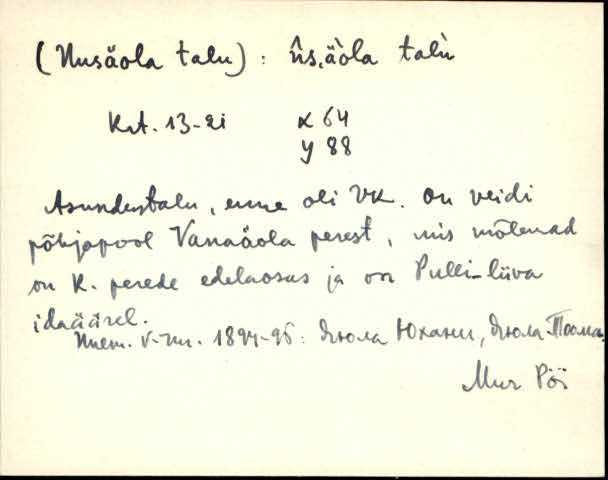 (Uusäola talu): ūs,äòla talù
Krt. 13-2i x 64
y 88
Asundustalu, enne oli VK. on veidi
põhjapool Vanaäola perest, mis mõlemad
on K. perede edelaosas ja on Pulli-liiva
idaäärel.
V-nim. 1894-95: Эюла Юхани, Эюла Тоома.
Mur Pöi